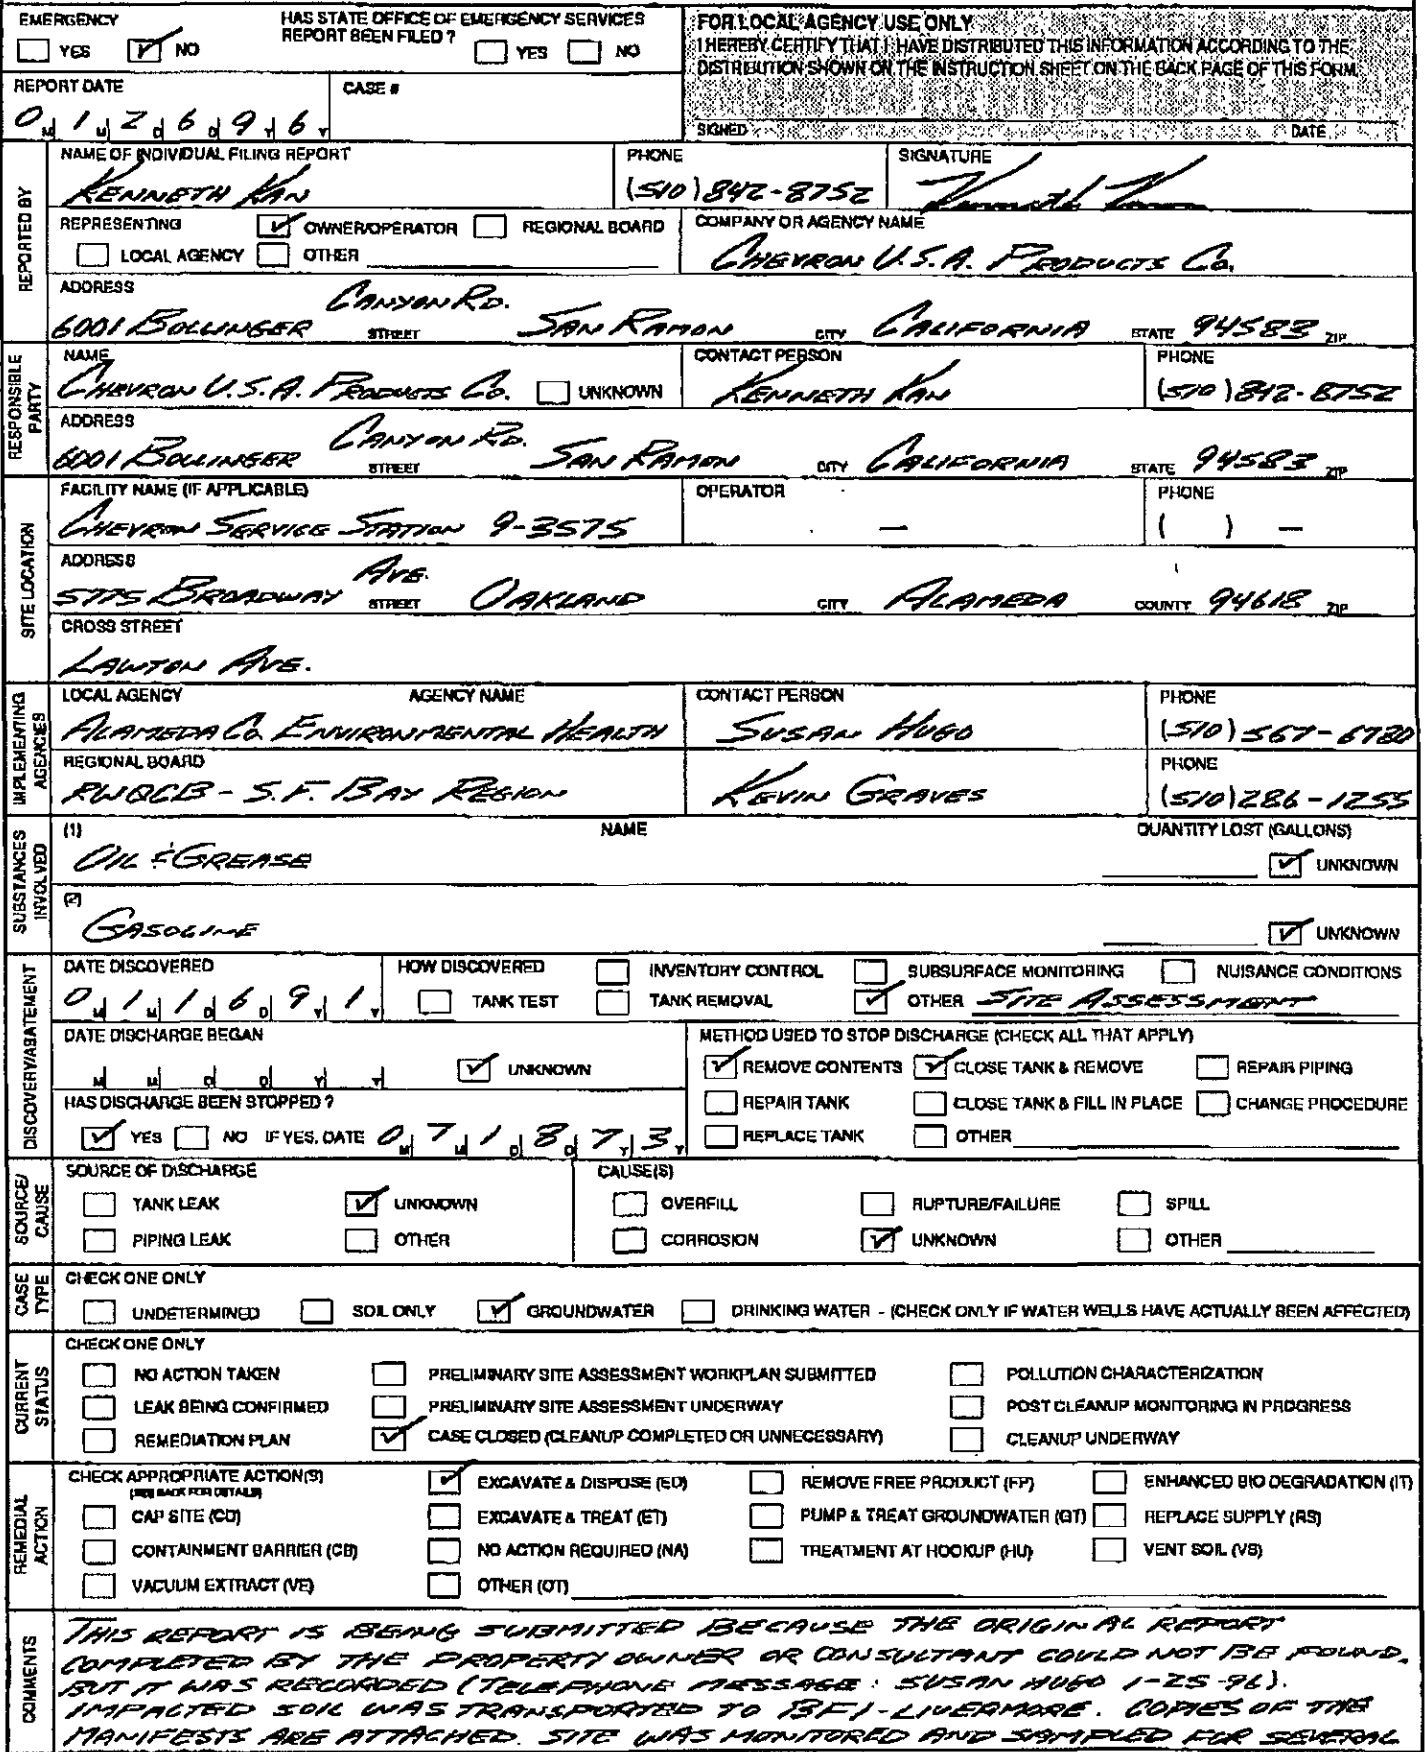 EMERGENCY
YES NO
HAS STATE OFFICE OF EMERGENCY SERVICES
REPORT BEEN FILED ? YES NO
FOR LOCAL AGENCY USE ONLY
I HEREBY CERTIFY THAT I HAVE DISTRIBUTED THIS INFORMATION ACCORDING TO THE
DISTRIBUTION SHOWN ON THE INSTRUCTION SHEET ON THE BACK PAGE OF THIS FORM.
REPORT DATE
0 M 1 M 2 D 6 D 9 Y 6 Y
CASE #
SIGNED DATE
REPORTED BY
NAME OF INDIVIDUAL FILING REPORT
KENNETH KAN
PHONE
(510) 842-8752
SIGNATURE
Kenneth Kan
REPRESENTING OWNER/OPERATOR REGIONAL BOARD
LOCAL AGENCY OTHER
COMPANY OR AGENCY NAME
CHEVRON U.S.A. PRODUCTS CO.
ADDRESS
6001 BOLLINGER CANYON RD. STREET SAN RAMON CITY CALIFORNIA STATE 94583 ZIP
RESPONSIBLE PARTY
NAME
CHEVRON U.S.A. PRODUCTS CO. UNKNOWN
CONTACT PERSON
KENNETH KAN
PHONE
(510) 842-8752
ADDRESS
6001 BOLLINGER CANYON RD. STREET SAN RAMON CITY CALIFORNIA STATE 94583 ZIP
SITE LOCATION
FACILITY NAME (IF APPLICABLE)
CHEVRON SERVICE STATION 9-3575
OPERATOR
—
PHONE
( ) —
ADDRESS
5775 BROADWAY AVE. STREET OAKLAND CITY ALAMEDA COUNTY 94618 ZIP
CROSS STREET
LAWTON AVE.
IMPLEMENTING AGENCIES
LOCAL AGENCY AGENCY NAME
ALAMEDA CO. ENVIRONMENTAL HEALTH
CONTACT PERSON
SUSAN HUGO
PHONE
(510) 567-6780
REGIONAL BOARD
RWQCB - S.F. BAY REGION
KEVIN GRAVES
PHONE
(510) 286-1255
SUBSTANCES INVOLVED
(1) NAME
OIL & GREASE
QUANTITY LOST (GALLONS)
UNKNOWN
(2)
GASOLINE
UNKNOWN
DISCOVERY/ABATEMENT
DATE DISCOVERED
0 M 1 M 1 D 6 D 9 Y 1 Y
HOW DISCOVERED INVENTORY CONTROL SUBSURFACE MONITORING NUISANCE CONDITIONS
TANK TEST TANK REMOVAL OTHER SITE ASSESSMENT
DATE DISCHARGE BEGAN
M M D D Y Y UNKNOWN
METHOD USED TO STOP DISCHARGE (CHECK ALL THAT APPLY)
REMOVE CONTENTS CLOSE TANK & REMOVE REPAIR PIPING
REPAIR TANK CLOSE TANK & FILL IN PLACE CHANGE PROCEDURE
REPLACE TANK OTHER
HAS DISCHARGE BEEN STOPPED ?
YES NO IF YES, DATE 0 M 7 M 1 D 8 D 7 Y 3 Y
SOURCE/ CAUSE
SOURCE OF DISCHARGE
TANK LEAK UNKNOWN
PIPING LEAK OTHER
CAUSE(S)
OVERFILL RUPTURE/FAILURE SPILL
CORROSION UNKNOWN OTHER
CASE TYPE
CHECK ONE ONLY
UNDETERMINED SOIL ONLY GROUNDWATER DRINKING WATER - (CHECK ONLY IF WATER WELLS HAVE ACTUALLY BEEN AFFECTED)
CURRENT STATUS
CHECK ONE ONLY
NO ACTION TAKEN PRELIMINARY SITE ASSESSMENT WORKPLAN SUBMITTED POLLUTION CHARACTERIZATION
LEAK BEING CONFIRMED PRELIMINARY SITE ASSESSMENT UNDERWAY POST CLEANUP MONITORING IN PROGRESS
REMEDIATION PLAN CASE CLOSED (CLEANUP COMPLETED OR UNNECESSARY) CLEANUP UNDERWAY
REMEDIAL ACTION
CHECK APPROPRIATE ACTION(S)
(SEE BACK FOR DETAILS)
EXCAVATE & DISPOSE (ED) REMOVE FREE PRODUCT (FP) ENHANCED BIO DEGRADATION (IT)
CAP SITE (CD) EXCAVATE & TREAT (ET) PUMP & TREAT GROUNDWATER (GT) REPLACE SUPPLY (RS)
CONTAINMENT BARRIER (CB) NO ACTION REQUIRED (NA) TREATMENT AT HOOKUP (HU) VENT SOIL (VS)
VACUUM EXTRACT (VE) OTHER (OT)
COMMENTS
THIS REPORT IS BEING SUBMITTED BECAUSE THE ORIGINAL REPORT
COMPLETED BY THE PROPERTY OWNER OR CONSULTANT COULD NOT BE FOUND,
BUT IT WAS RECORDED (TELEPHONE MESSAGE: SUSAN HUGO 1-25-96).
IMPACTED SOIL WAS TRANSPORTED TO BFI-LIVERMORE. COPIES OF THE
MANIFESTS ARE ATTACHED. SITE WAS MONITORED AND SAMPLED FOR SEVERAL